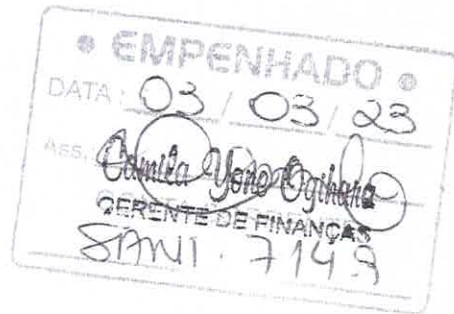 EMPENHADO
DATA: 03 / 03 / 23
Ass. Camila Yono Ogihara
GERENTE DE FINANÇAS
SANI. 7149